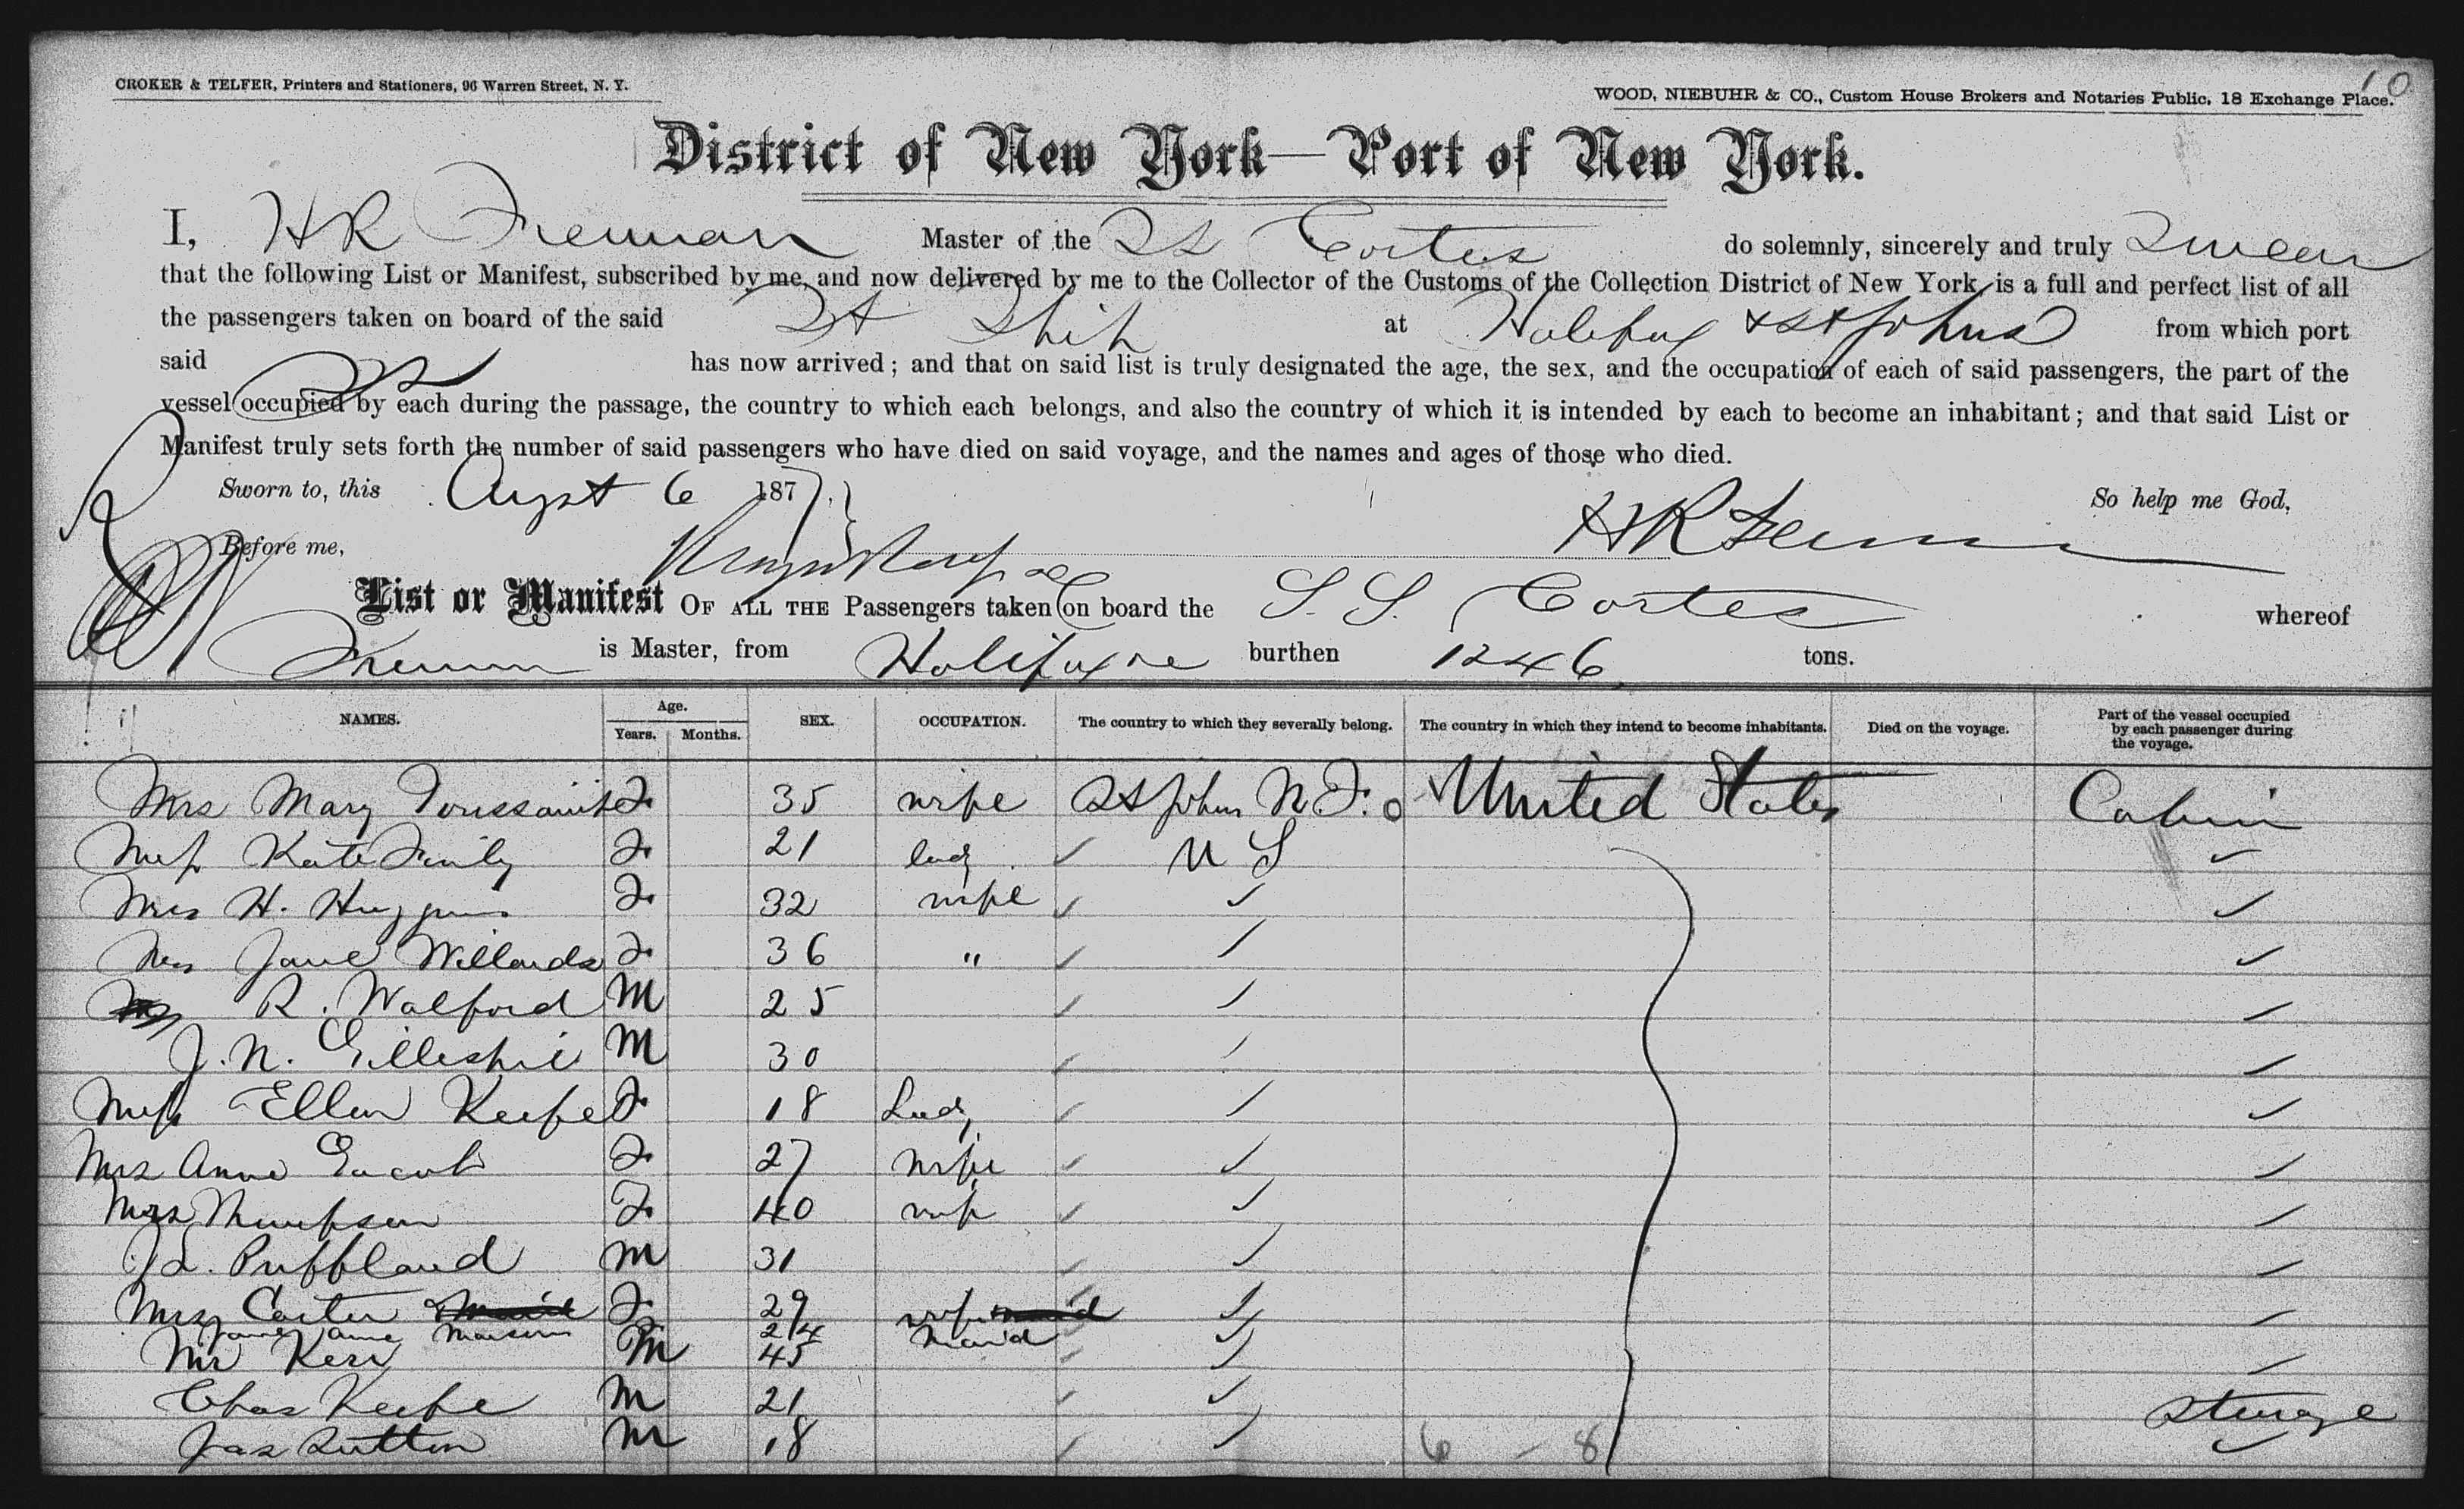 10
CROKER & TELFER, Printers and Stationers, 96 Warren Street, N. Y.
WOOD, NIEBUHR & CO., Custom House Brokers and Notaries Public, 18 Exchange Place.
District of New York—Port of New York.
I, H R Freeman Master of the SS Cortes do solemnly, sincerely and truly Swear
that the following List or Manifest, subscribed by me, and now delivered by me to the Collector of the Customs of the Collection District of New York, is a full and perfect list of all
the passengers taken on board of the said St Ship at Halifax & St Johns from which port
said SS has now arrived; and that on said list is truly designated the age, the sex, and the occupation of each of said passengers, the part of the
vessel occupied by each during the passage, the country to which each belongs, and also the country of which it is intended by each to become an inhabitant; and that said List or
Manifest truly sets forth the number of said passengers who have died on said voyage, and the names and ages of those who died.
Sworn to, this Augst 6 1877. So help me God,
Before me, HR Freeman
List or Manifest OF ALL THE Passengers taken on board the S. S. Cortes whereof
Freeman is Master, from Halifax burthen 1246 tons.
NAMES. Age. Years. Months. SEX. OCCUPATION. The country to which they severally belong. The country in which they intend to become inhabitants. Died on the voyage. Part of the vessel occupied by each passenger during the voyage.
Mrs Mary Toussaint F 35 wife St Johns N.F. United States Cabin
Miss Kate F 21 lady ✓ U S ✓
Mrs H. Huggins F 32 wife ✓ ✓ ✓
Mrs Jane Willards F 36 " ✓ ✓ ✓
R. Walford M 25 ✓ ✓ ✓
J. N. Gilleshie M 30 ✓ ✓ ✓
Miss Ellen Keefe F 18 Lady ✓ ✓ ✓
Mrs Anne F 27 wife ✓ ✓ ✓
Mrs Thompson F 40 wife ✓ ✓ ✓
J L. Puffland M 31 ✓ ✓ ✓
Mrs Carter & Maid F 29 wife maid ✓ ✓ ✓
Jane Anne 24 Maid
Mr Kerr M 45 ✓ ✓ ✓
Chas Keefe M 21 ✓ ✓ Steerage
Jas Sutton M 18 ✓ ✓ 6 - 8 ✓